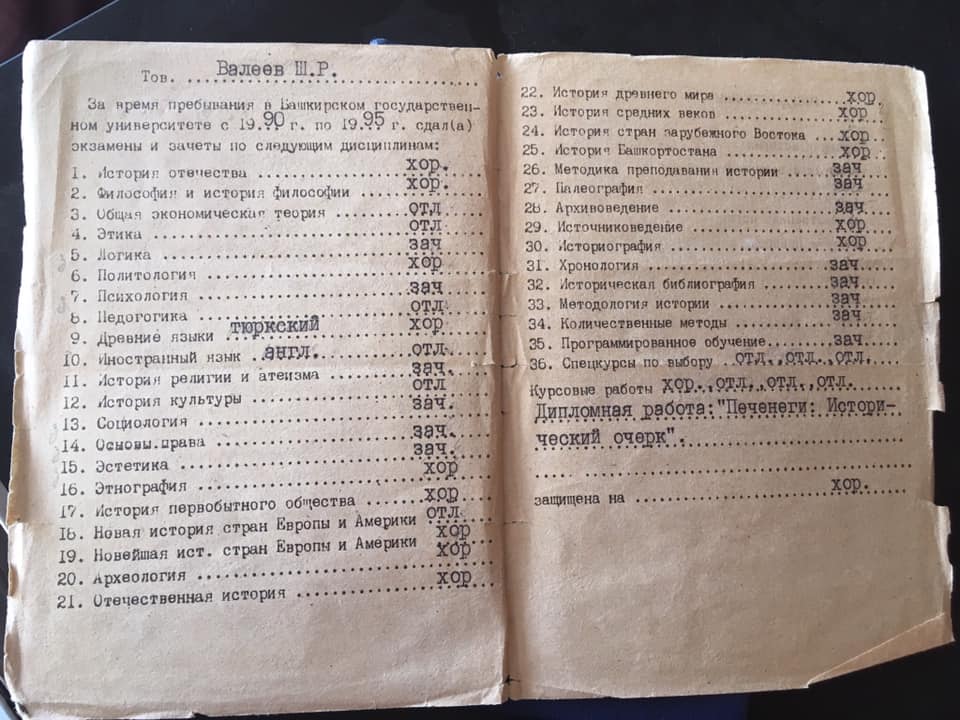 Тов. Валеев Ш.Р.
За время пребывания в Башкирском государствен-
ном университете с 19.90 г. по 19.95 г. сдал(а)
экзамены и зачеты по следующим дисциплинам:
1. История отечества хор.
2. Философия и история философии хор.
3. Общая экономическая теория отл
4. Этика отл
5. Логика зач
6. Политология хор
7. Психология зач
8. Педогогика отл
9. Древние языки тюркский хор
10. Иностранный язык англ. отл.
11. История религии и атеизма зач.
12. История культуры отл
13. Социология зач.
14. Основы права зач.
15. Эстетика зач.
16. Этнография хор
17. История первобытного общества хор
18. Новая история стран Европы и Америки отл
19. Новейшая ист. стран Европы и Америки хор
20. Археология хор
21. Отечественная история хор
22. История древнего мира хор
23. История средних веков хор
24. История стран зарубежного Востока хор
25. История Башкортостана хор
26. Методика преподавания истории зач
27. Палеография зач
28. Архивоведение зач
29. Источниковедение хор
30. Историография хор
31. Хронология зач
32. Историческая библиография зач
33. Методология истории зач
34. Количественные методы зач
35. Программированное обучение зач.
36. Спецкурсы по выбору отл., отл., отл.
Курсовые работы хор., отл., отл., отл.
Дипломная работа: "Печенеги: Истори-
ческий очерк".
защищена на хор.